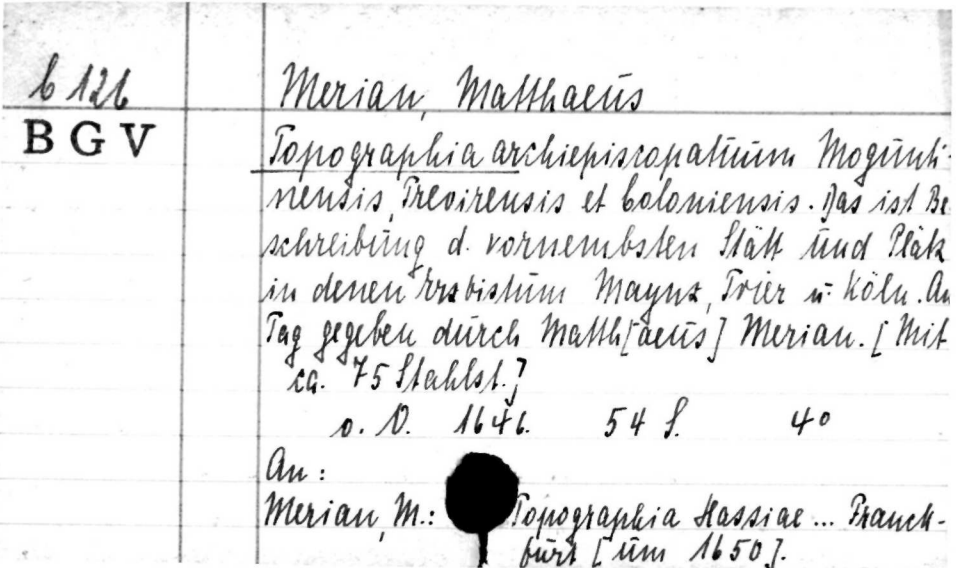 b 126 Merian, Matthaeus
BGV
Topographia archiepiscopatuum Mogunti-
nensis, Trevirensis et Coloniensis. Das ist Be
schreibung d. vornembsten Stätt und Plätz
in denen Erzbistum Maynz, Trier u. Köln. An
Tag gegeben durch Matth[aeus] Merian. [Mit
ca. 75 Stahlst.]
o. O. 1646. 54 S. 4°
An:
Merian, M.: Topographia Hassiae ... Franck-
furt [um 1650].